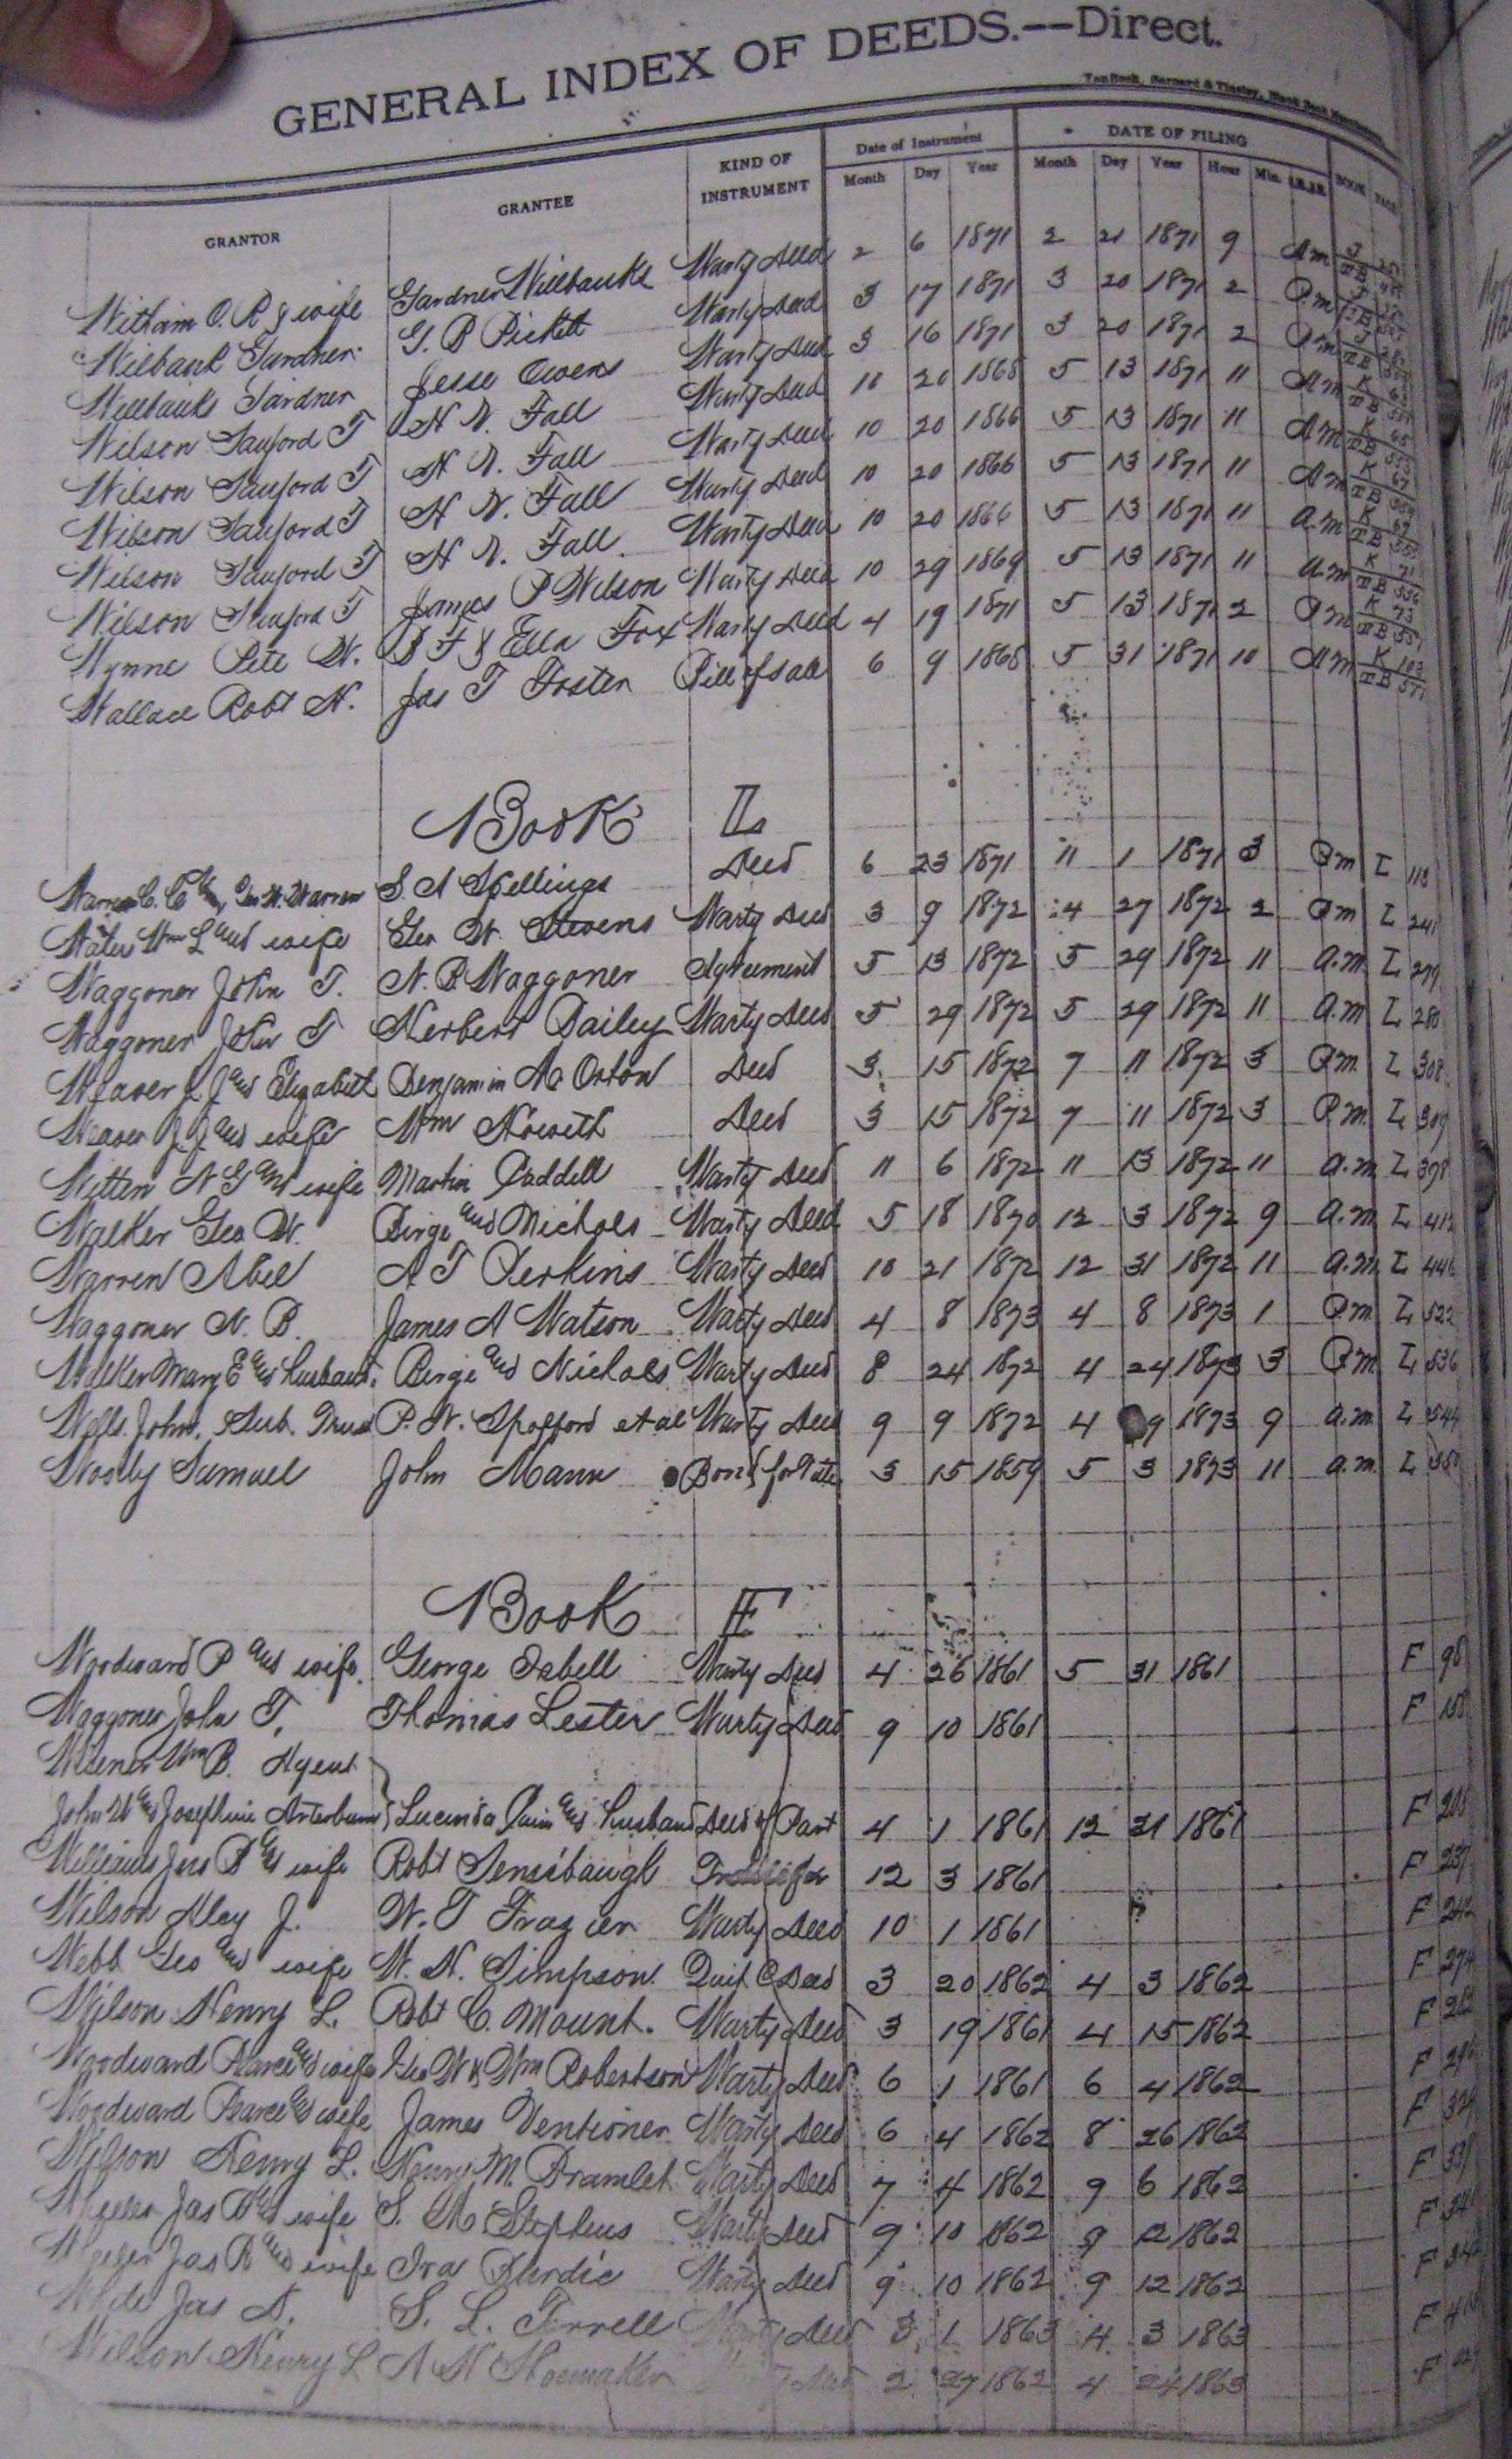 GENERAL INDEX OF DEEDS.--Direct.
GRANTOR GRANTEE KIND OF INSTRUMENT Date of Instrument DATE OF FILING
Month Day Year Month Day Year Hour Min. BOOK PAGE
Witham O. R & wife Gardner Wilbanks Warty Deed 2 6 1871 2 21 1871 9 A m J
Wilbank Gardner G. B Pickett Warty Deed 3 17 1871 3 20 1871 2 P. m J
Wilbanks Gardner Jesse Owens Warty Deed 3 16 1871 3 20 1871 2 P m J
Wilson Sanford T H N. Fall Warty Deed 20 5 13 1871 11 A m K
Wilson Sanford T H N. Fall Warty Deed 10 20 1866 5 13 1871 11 A m K 65
Wilson Sanford T H N. Fall Warty Deed 10 20 1866 5 13 1871 11 A m K 67
Wilson Sanford T H N. Fall Warty Deed 10 20 1866 5 13 1871 11 a. m K 69
Wilson Sanford T James P Wilson Warty Deed 10 29 1869 5 13 1871 11 a. m K 71
Wynne Pete W. B F & Ella Fox Warty Deed 4 19 1871 5 13 1871 2 P m K 73
Wallace Robt H. Jas T Foster Bill of sale 6 9 1868 5 31 1871 10 A m K 103
Book L
Warren C. C Geo W. Warren S. A Spellings Deed 6 23 1871 11 1 1871 3 P m L 113
Waters Wm L and wife Geo W. Stevens Warty Deed 3 9 1872 4 27 1872 2 P m L 241
Waggoner John T. N. B Waggoner Agreement 5 13 1872 5 29 1872 11 a. m. L 279
Waggoner John T Herbert Dailey Warty Deed 5 29 1872 5 29 1872 11 a. m L 280
Weaver J. J and Elizabeth Benjamin A Orton Deed 3 15 1872 7 11 1872 3 P. m. L 308
Weaver J. J and wife Wm Deed 3 15 1872 7 11 1872 3 P. m. L 309
Witten N G and wife Martin Paddell Warty Deed 11 6 1872 11 13 1872 11 a. m L 378
Walker Geo W. Birge and Nichols Warty Deed 5 18 1870 12 3 1872 9 a. m L 412
Warren Abel A T Perkins Warty Deed 10 21 1872 12 31 1872 11 a. m. L 446
Waggoner N. B. James A Watson Warty Deed 4 8 1873 4 8 1873 1 P. m L 522
Walker Mary E and husband. Birge and Nichols Warty Deed 8 24 1872 4 24 1873 3 P. m. L 536
Wells John, Sub. Trus P. N. Spofford et al Warty Deed 9 9 1872 4 9 1873 9 a. m. L 544
Woody Samuel John Mann Bond for title 3 15 1859 5 3 1873 11 a. m. L
Book F
Woodward P and wife. George Isbell Warty Deed 4 26 1861 5 31 1861 F 98
Waggoner John T. Thomas Lester Warty Deed 9 10 1861 F 158
Wisener Wm B. Agent
John W and Josephine Arterburn Lucinda Cain and husband Deed of Part 4 1 1861 12 21 1861 F
Williams Jas B and wife Robt Sensibaugh 12 3 1861 F 237
Wilson Aley J. W. T Frazier Warty Deed 10 1 1861 F 242
Webb Geo and wife W. H. Simpson Quit C Deed 3 20 1862 4 3 1862 F 274
Wilson Henry L. Robt C. Mount. Warty Deed 3 19 1861 4 15 1862 F
Woodward Pearce and wife Geo W & Wm Robertson Warty Deed 6 1 1861 6 4 1862 F
Woodward Pearce and wife James Ventioner Warty Deed 6 4 1862 8 26 1862 F
Wilson Henry L. Henry M. Bramlet Warty Deed 7 4 1862 9 6 1862 F
Jas R and wife S. M Stephens Warty Deed 9 10 1862 9 12 1862 F
Jas R and wife Ira Burdic Warty Deed 9 10 1862 9 12 1862 F
Jas A. S. L. Terrell Warty Deed 3 1 1863 4 3 1863 F
Wilson Henry L A H Shoemaker Deed 2 27 1862 4 24 1863 F